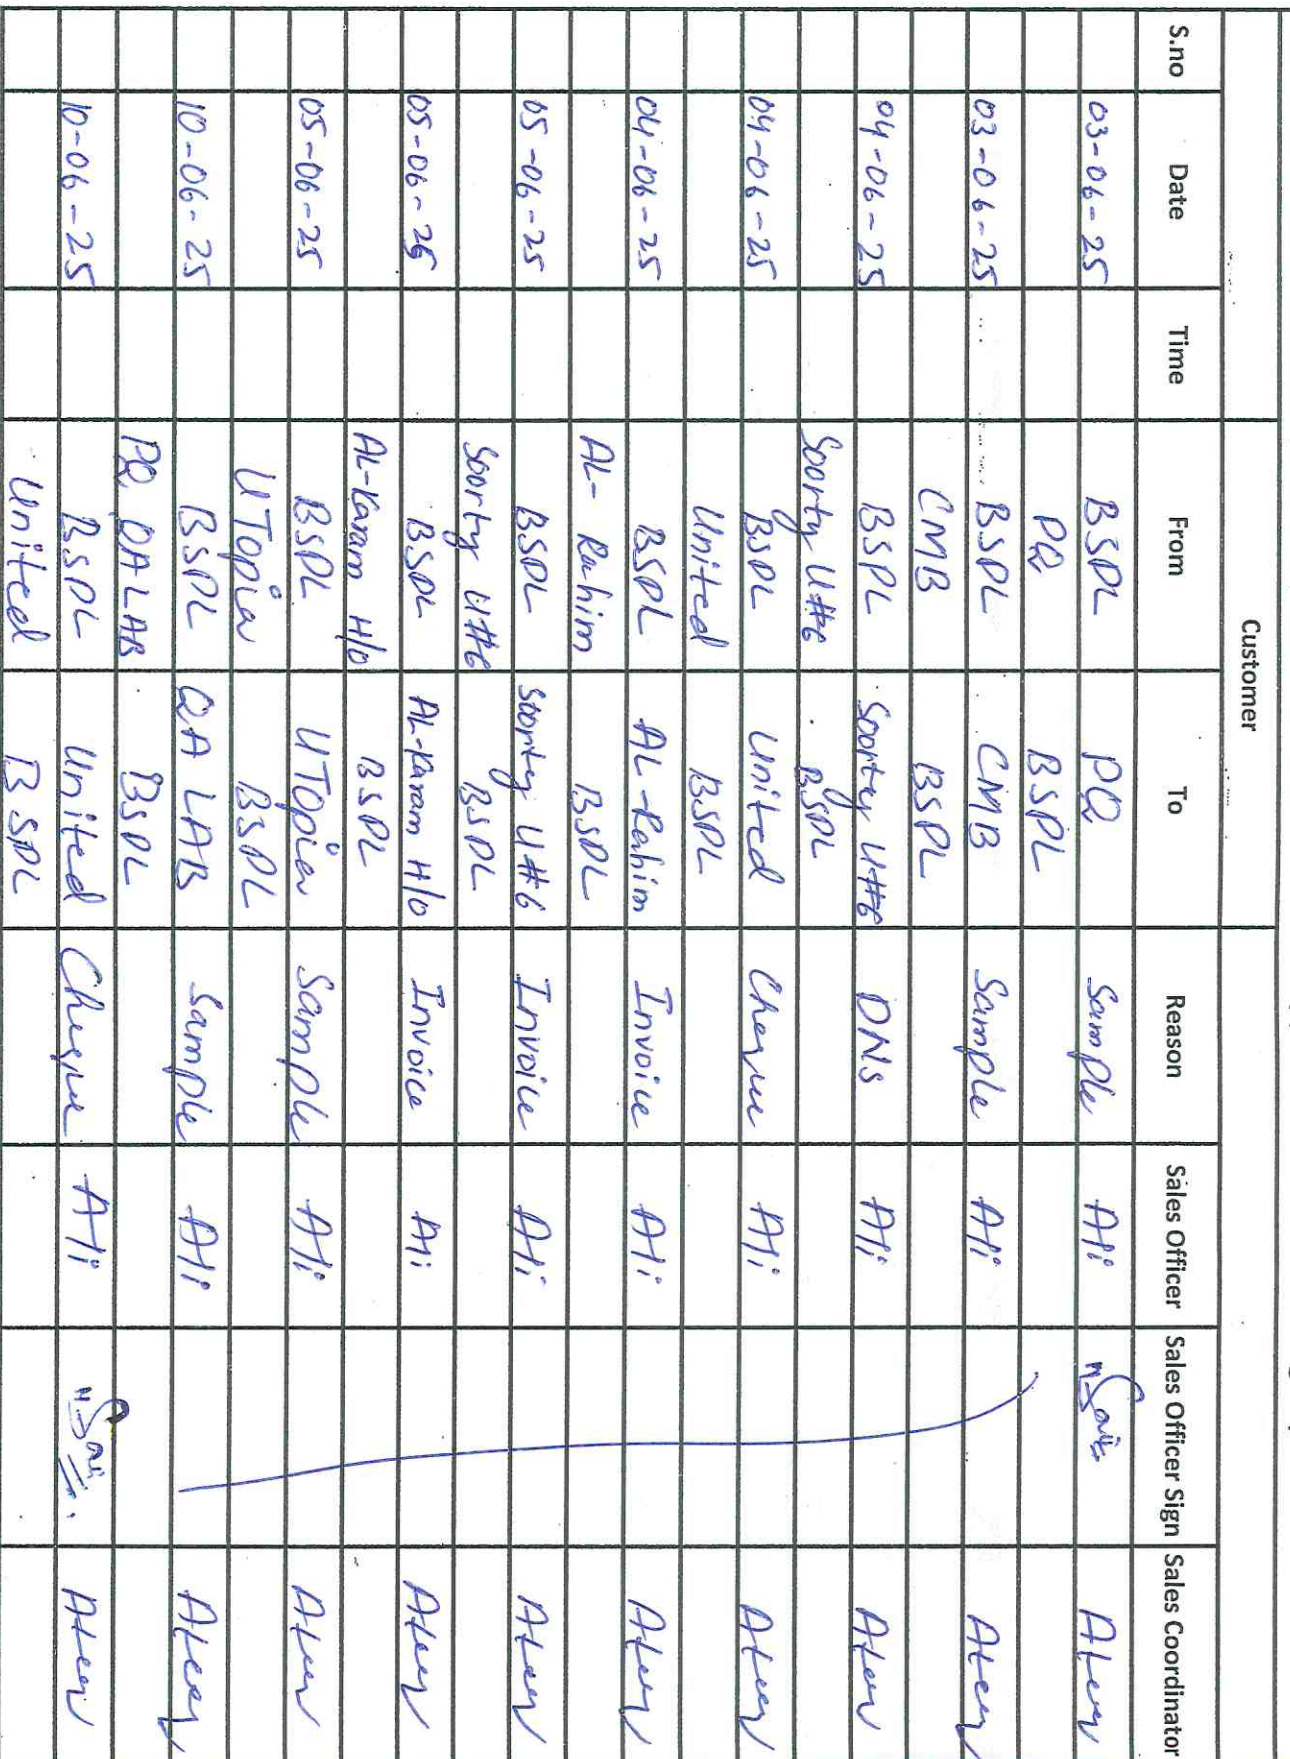 Customer
S.no Date Time From To Reason Sales Officer Sales Officer Sign Sales Coordinator
03-06-25 BSPL PQ Sample Ali
PQ BSPL
03-06-25 BSPL CMB Sample Ali
CMB BSPL
04-06-25 BSPL Soorty U#6 DNs Ali
Soorty U#6 BSPL
04-06-25 BSPL United Cheque Ali
United BSPL
04-06-25 BSPL AL-Rahim Invoice Ali
AL-Rahim BSPL
05-06-25 BSPL Soorty U#6 Invoice Ali
Soorty U#6 BSPL
05-06-25 BSPL AL-Karam H/O Invoice Ali
AL-Karam H/O BSPL
05-06-25 BSPL UTopia Sample Ali
UTopia BSPL
10-06-25 BSPL QA LAB Sample Ali
PQ QA LAB BSPL
10-06-25 BSPL United Cheque Ali
United BSPL